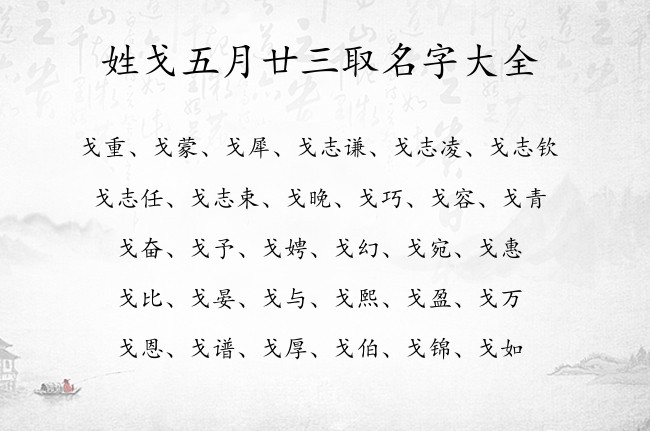 姓戈五月廿三取名字大全
戈重、戈蒙、戈犀、戈志谦、戈志凌、戈志钦
戈志任、戈志束、戈晚、戈巧、戈容、戈青
戈奋、戈予、戈娉、戈幻、戈宛、戈惠
戈比、戈晏、戈与、戈熙、戈盈、戈万
戈恩、戈谱、戈厚、戈伯、戈锦、戈如